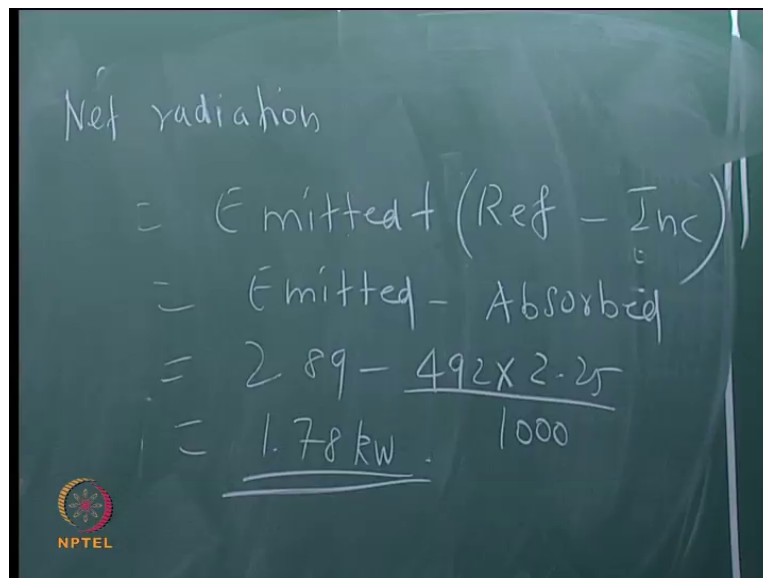 Net radiation
= Emitted + (Ref - Inc)
= Emitted - Absorbed
= 2 89 - 492 X 2.25
1000
= 1.78 kw.
NPTEL